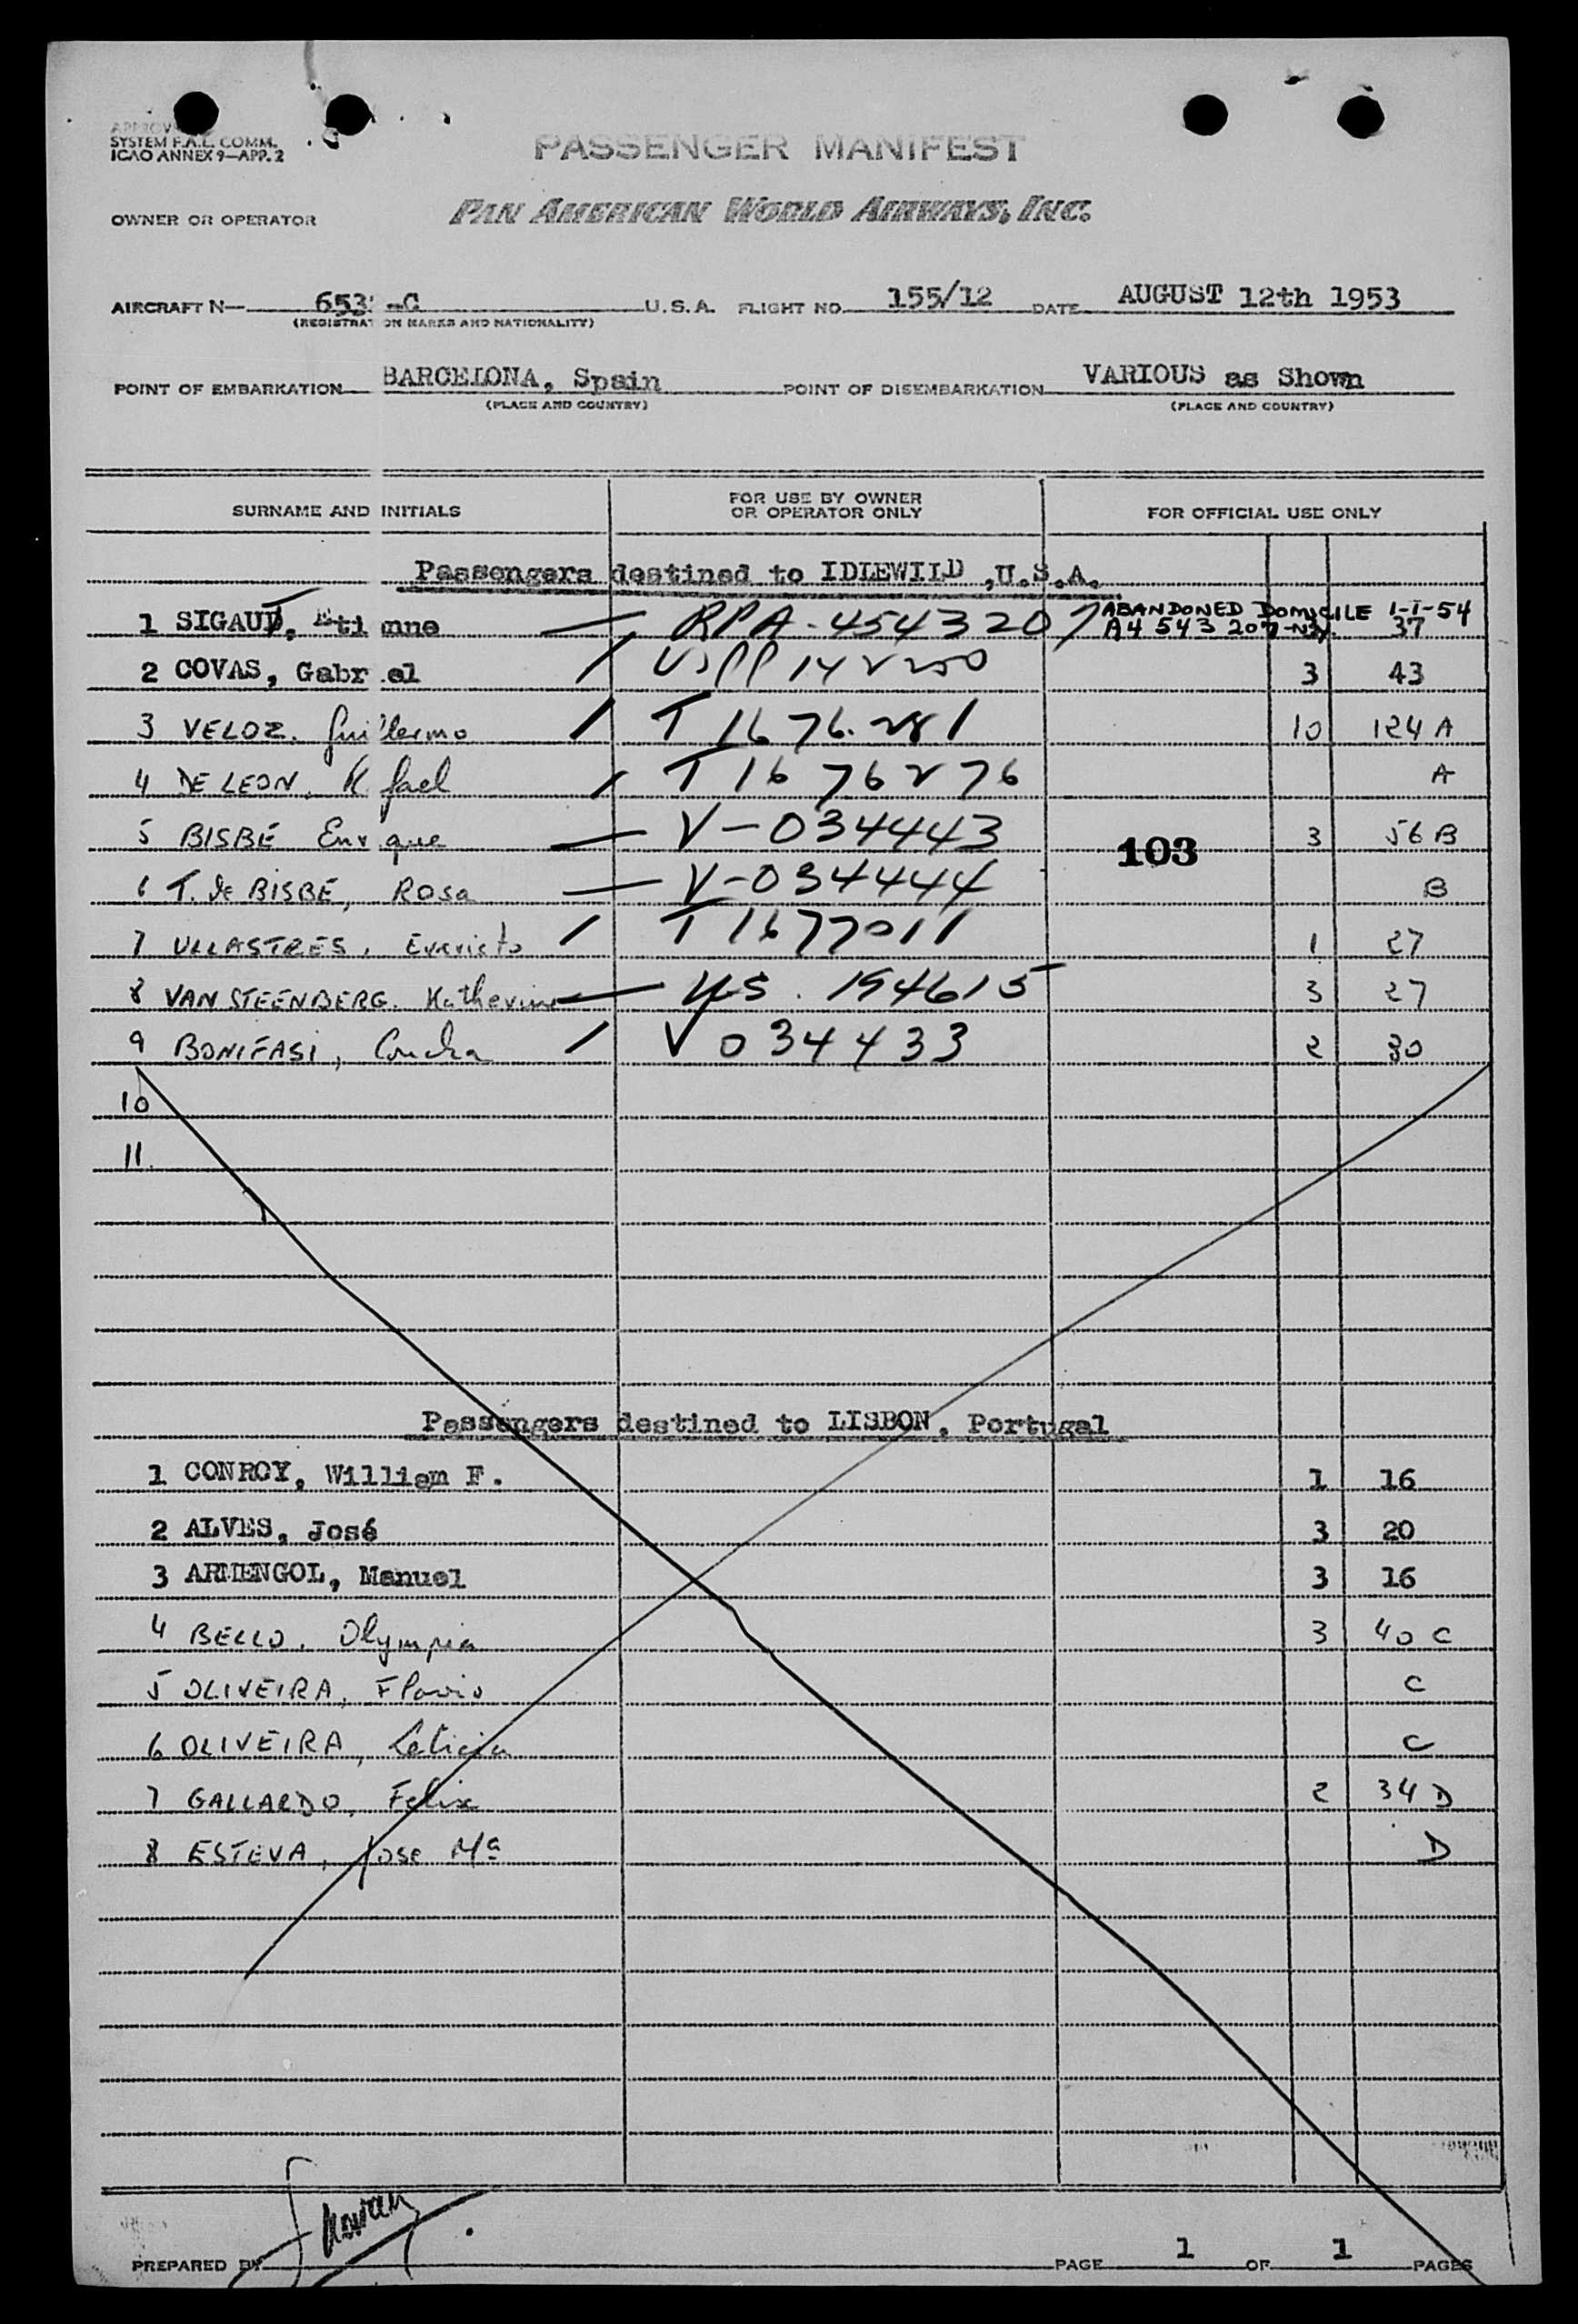 SYSTEM F.A.L. COMM.
ICAO ANNEX 9—APP. 2
PASSENGER MANIFEST
OWNER OR OPERATOR PAN AMERICAN WORLD AIRWAYS, INC.
AIRCRAFT N— 653 -C U.S.A. FLIGHT NO. 155/12 DATE AUGUST 12th 1953
(REGISTRATION MARKS AND NATIONALITY)
POINT OF EMBARKATION BARCELONA, Spain POINT OF DISEMBARKATION VARIOUS as Shown
(PLACE AND COUNTRY) (PLACE AND COUNTRY)
SURNAME AND INITIALS FOR USE BY OWNER OR OPERATOR ONLY FOR OFFICIAL USE ONLY
Passengers destined to IDLEWILD ,U.S.A.
1 SIGAUD, Eti nne RPA-4543207 ABANDONED DOMICILE 1-1-54
A4 543 207-NY. 37
2 COVAS, Gabr el 3 43
3 VELOZ. Guillermo T 1676.281 10 124 A
4 DE LEON, R fael T 1676276 A
5 BISBÉ Enr que V-034443 103 3 56 B
6 T. de BISBÉ, Rosa V-034444 B
7 ULLASTRES, Evaristo T 1677011 1 27
8 VAN STEENBERG. Katherine US. 194615 3 27
9 BONIFASI, Concha V 034433 2 30
10
11.
Passengers destined to LISBON, Portugal
1 CONROY, William F. 1 16
2 ALVES, José 3 20
3 ARMENGOL, Manuel 3 16
4 BELLO. Olympia 3 40 C
5 OLIVEIRA, Flavio C
6 OLIVEIRA, Leticia C
7 GALLARDO, Felix 2 34 D
8 ESTEVA, Jose Mª D
PREPARED BY PAGE 1 OF 1 PAGES